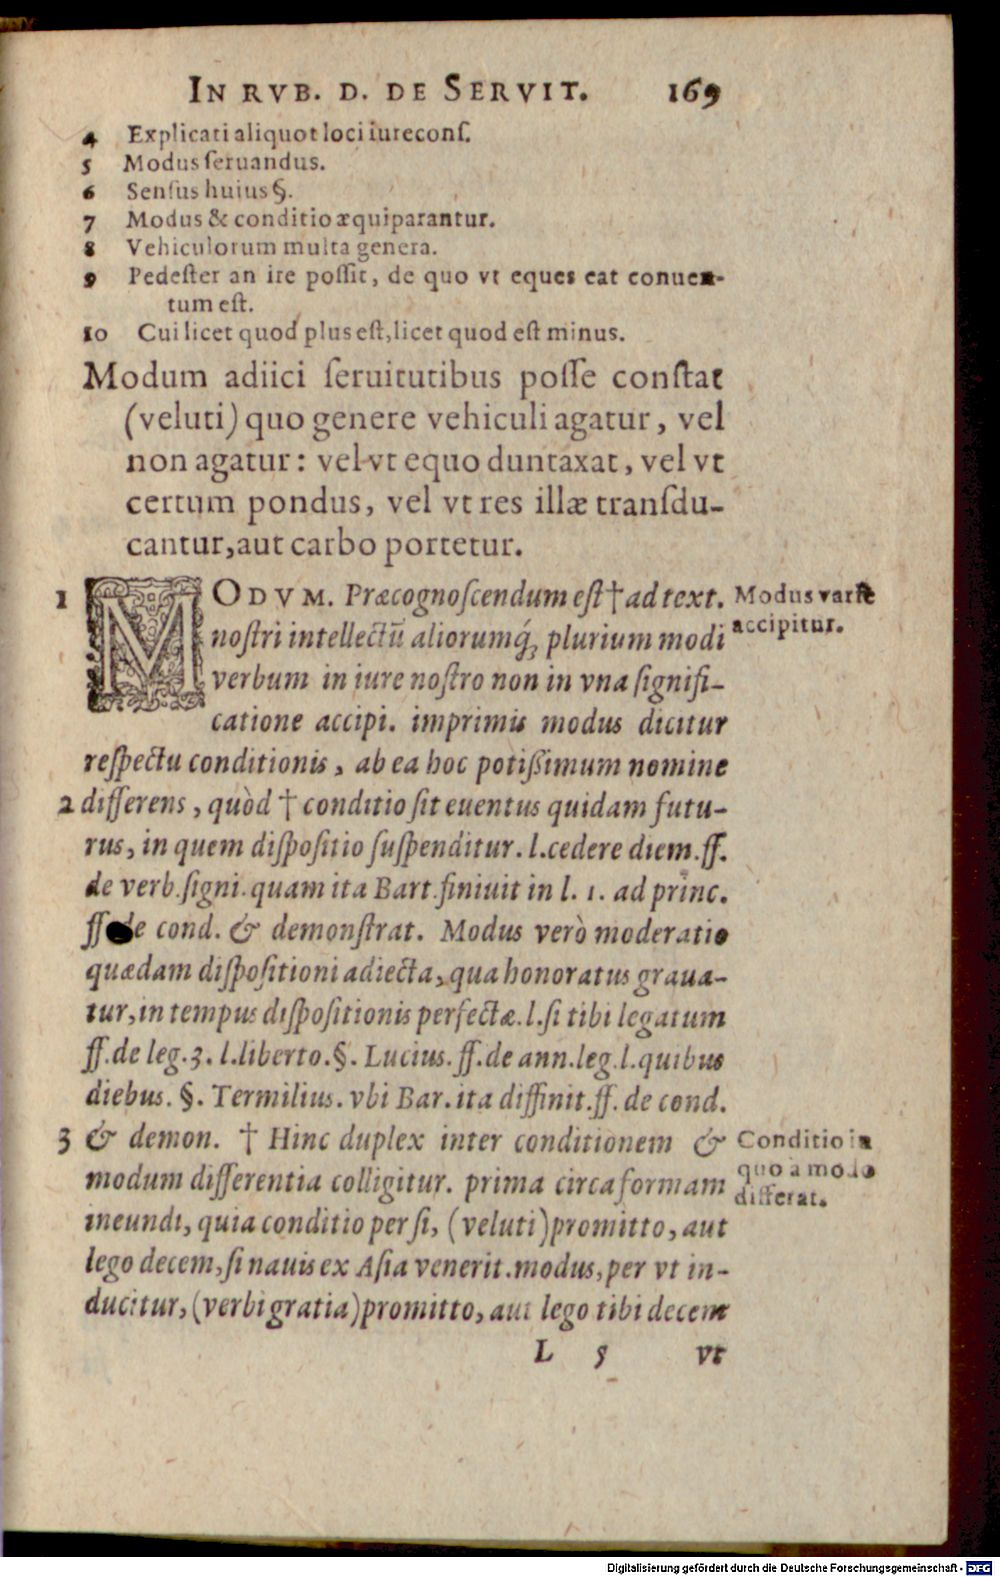 IN RVB. D. DE SERVIT. 169
4 Explicati aliquot loci iurecons.
5 Modus seruandus.
6 Sensus huius §.
7 Modus & conditio æquiparantur.
8 Vehiculorum multa genera.
9 Pedester an ire possit, de quo vt eques eat conuen-
tum est.
10 Cui licet quod plus est, licet quod est minus.
Modum adiici seruitutibus posse constat
(veluti) quo genere vehiculi agatur, vel
non agatur: vel vt equo duntaxat, vel vt
certum pondus, vel vt res illæ transdu-
cantur, aut carbo portetur.
1 MODVM. Præcognoscendum est † ad text.
Modus varie
nostri intellectũ aliorumq́; plurium modi
accipitur.
verbum in iure nostro non in vna signifi-
catione accipi. imprimis modus dicitur
respectu conditionis, ab ea hoc potißimum nomine
2 differens, quòd † conditio sit euentus quidam futu-
rus, in quem dispositio suspenditur. l. cedere diem. ff.
de verb. signi. quam ita Bart. finiuit in l. 1. ad princ.
ff. de cond. & demonstrat. Modus verò moderatio
quædam dispositioni adiecta, qua honoratus graua-
tur, in tempus dispositionis perfectæ. l. si tibi legatum
ff. de leg. 3. l. liberto. §. Lucius. ff. de ann. leg. l. quibus
diebus. §. Termilius. vbi Bar. ita diffinit. ff. de cond.
3 & demon. † Hinc duplex inter conditionem &
Conditio in
modum differentia colligitur. prima circa formam
quo a modo
differat.
ineundi, quia conditio per si, (veluti) promitto, aut
lego decem, si nauis ex Asia venerit. modus, per vt in-
ducitur, (verbi gratia) promitto, aut lego tibi decem
L 5 vt
Digitalisierung gefördert durch die Deutsche Forschungsgemeinschaft - DFG